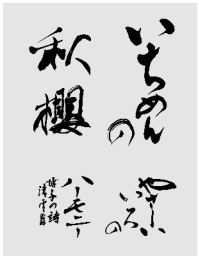 いちめんの
秋櫻
やさしい
いろの
ハーモニー
博子の詩